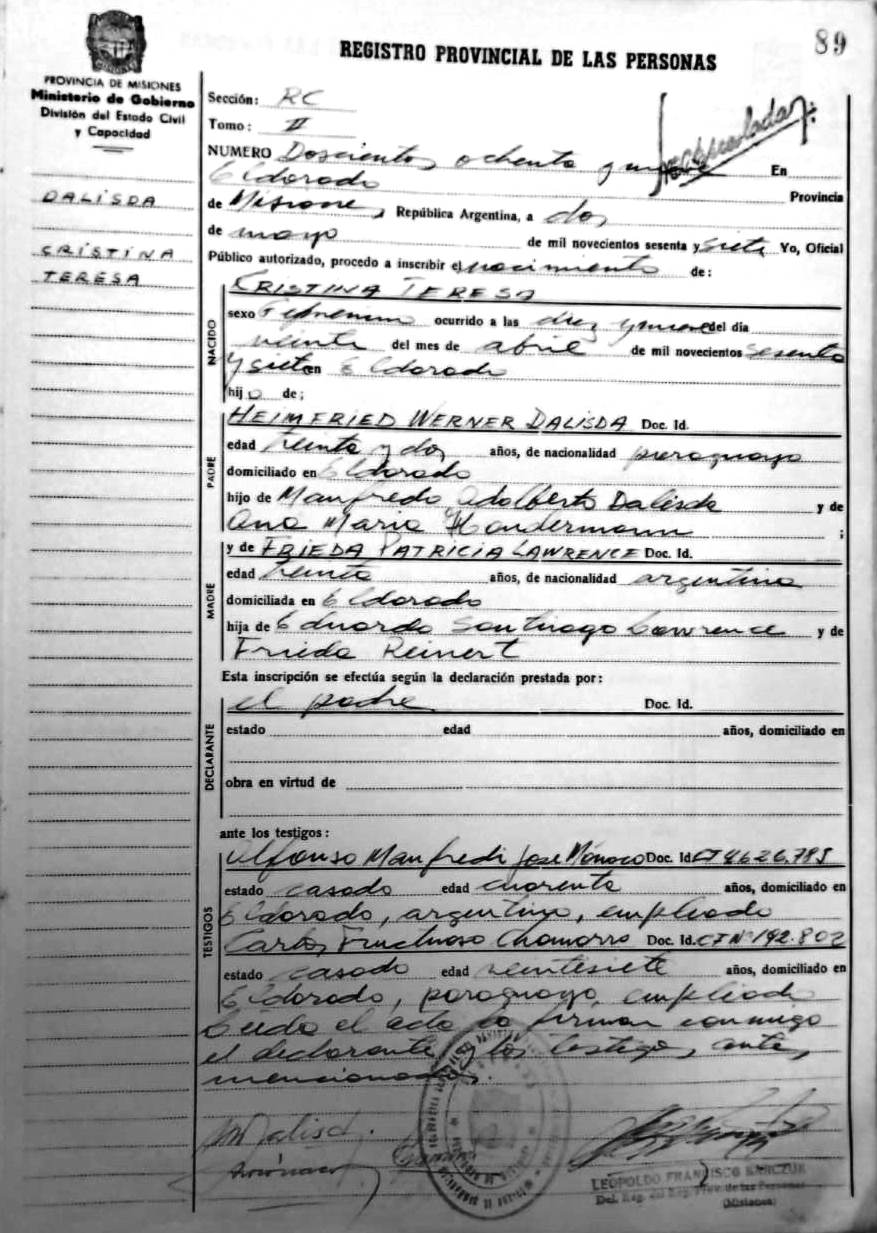 89
REGISTRO PROVINCIAL DE LAS PERSONAS
PROVINCIA DE MISIONES
Ministerio de Gobierno
División del Estado Civil
y Capacidad
DALISDA
CRISTINA
TERESA
Sección: RC
Tomo: II
NUMERO Doscientos ochenta y nueve En
Eldorado Provincia
de Misiones, República Argentina, a dos
de mayo de mil novecientos sesenta y siete Yo, Oficial
Público autorizado, procedo a inscribir el nacimiento de:
NACIDO
CRISTINA TERESA
sexo Femenino ocurrido a las diez y nueve del día
veinte del mes de abril de mil novecientos sesenta
y siete en Eldorado
hijo de;
PADRE
HEIMFRIED WERNER DALISDA Doc. Id.
edad treinta y dos años, de nacionalidad paraguayo
domiciliado en Eldorado
hijo de Manfredo Adalberto Dalisda y de
Ana Maria Handermann ;
MADRE
y de FRIEDA PATRICIA LAWRENCE Doc. Id.
edad treinta años, de nacionalidad argentina
domiciliada en Eldorado
hija de Eduardo Santiago Lawrence y de
Frieda Reinert
Esta inscripción se efectúa según la declaración prestada por:
DECLARANTE
el padre Doc. Id.
estado edad años, domiciliado en
obra en virtud de
ante los testigos:
TESTIGOS
Alfonso Manfredi José Mónaco Doc. Id. CI 4626.785
estado casado edad cuarenta años, domiciliado en
Eldorado, argentino, empleado
Carlos Fructuoso Chamorro Doc. Id. CI Nº 192.802
estado casado edad veintesiete años, domiciliado en
Eldorado, paraguayo, empleado
Leída el acta la firman conmigo
el declarante y los testigos antes
mencionados.
LEOPOLDO FRANCISCO KARCZUK
Del. Reg. Prov. de las Personas
(Misiones)